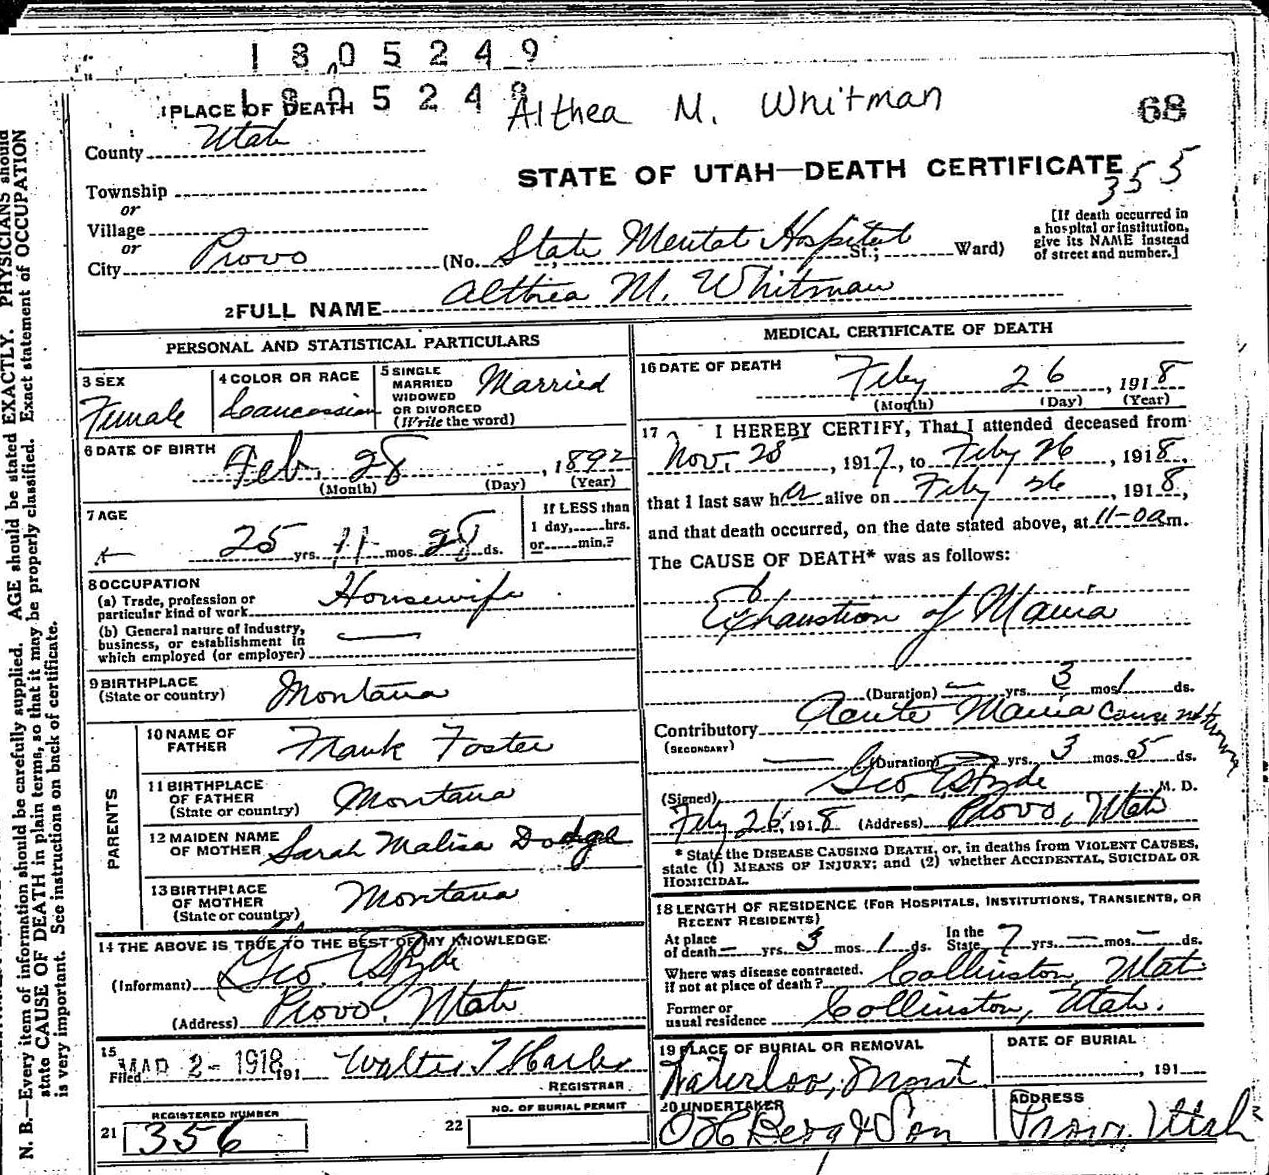 1805249
1805249
Althea M. Whitman
68
1 PLACE OF DEATH
County Utah
STATE OF UTAH—DEATH CERTIFICATE
355
Township
or
Village
or
City Provo (No. State Mental Hospital St.; Ward)
[If death occurred in
a hospital or institution,
give its NAME instead
of street and number.]
2 FULL NAME Althea M. Whitman
PERSONAL AND STATISTICAL PARTICULARS
3 SEX
Female
4 COLOR OR RACE
Caucassian
5 SINGLE
MARRIED
WIDOWED
OR DIVORCED
(Write the word)
Married
6 DATE OF BIRTH
Feb. 28, 1892
(Month) (Day) (Year)
7 AGE
25 yrs. 11 mos. 28 ds.
If LESS than
1 day,......hrs.
or......min.?
8 OCCUPATION
(a) Trade, profession or
particular kind of work Housewife
(b) General nature of industry,
business, or establishment in
which employed (or employer)
9 BIRTHPLACE
(State or country) Montana
PARENTS
10 NAME OF
FATHER Frank Foster
11 BIRTHPLACE
OF FATHER
(State or country) Montana
12 MAIDEN NAME
OF MOTHER Sarah Malisa Dodge
13 BIRTHPLACE
OF MOTHER
(State or country) Montana
14 THE ABOVE IS TRUE TO THE BEST OF MY KNOWLEDGE
(Informant) Geo. E. Hyde
(Address) Provo, Utah
15
Filed MAR 2- 1918 191 Walter T Hasler
REGISTRAR
REGISTERED NUMBER
21 356
NO. OF BURIAL PERMIT
22
MEDICAL CERTIFICATE OF DEATH
16 DATE OF DEATH
Feby 26, 1918
(Month) (Day) (Year)
17 I HEREBY CERTIFY, That I attended deceased from
Nov. 25, 1917, to Feby 26, 1918,
that I last saw her alive on Feby 26, 1918,
and that death occurred, on the date stated above, at 11-00 a m.
The CAUSE OF DEATH* was as follows:
Exhaustion of Mania
(Duration) — yrs. 3 mos. 1 ds.
Contributory Acute Mania Cause not known
(SECONDARY)
(Duration) — yrs. 3 mos. 5 ds.
(Signed) Geo. E. Hyde M. D.
Feby 26, 1918 (Address) Provo, Utah
* State the DISEASE CAUSING DEATH, or, in deaths from VIOLENT CAUSES,
state (1) MEANS OF INJURY; and (2) whether ACCIDENTAL, SUICIDAL OR
HOMICIDAL.
18 LENGTH OF RESIDENCE (FOR HOSPITALS, INSTITUTIONS, TRANSIENTS, OR
RECENT RESIDENTS)
At place
of death — yrs. 3 mos. 1 ds. In the
State 7 yrs. — mos. — ds.
Where was disease contracted,
if not at place of death? Collinston, Utah
Former or
usual residence Collinston, Utah.
19 PLACE OF BURIAL OR REMOVAL
Waterloo, Mont
DATE OF BURIAL
, 191
20 UNDERTAKER
O H Berg & Son
ADDRESS
Provo, Utah
N. B.—Every item of information should be carefully supplied. AGE should be stated EXACTLY. PHYSICIANS should
state CAUSE OF DEATH in plain terms, so that it may be properly classified. Exact statement of OCCUPATION
is very important. See instructions on back of certificate.